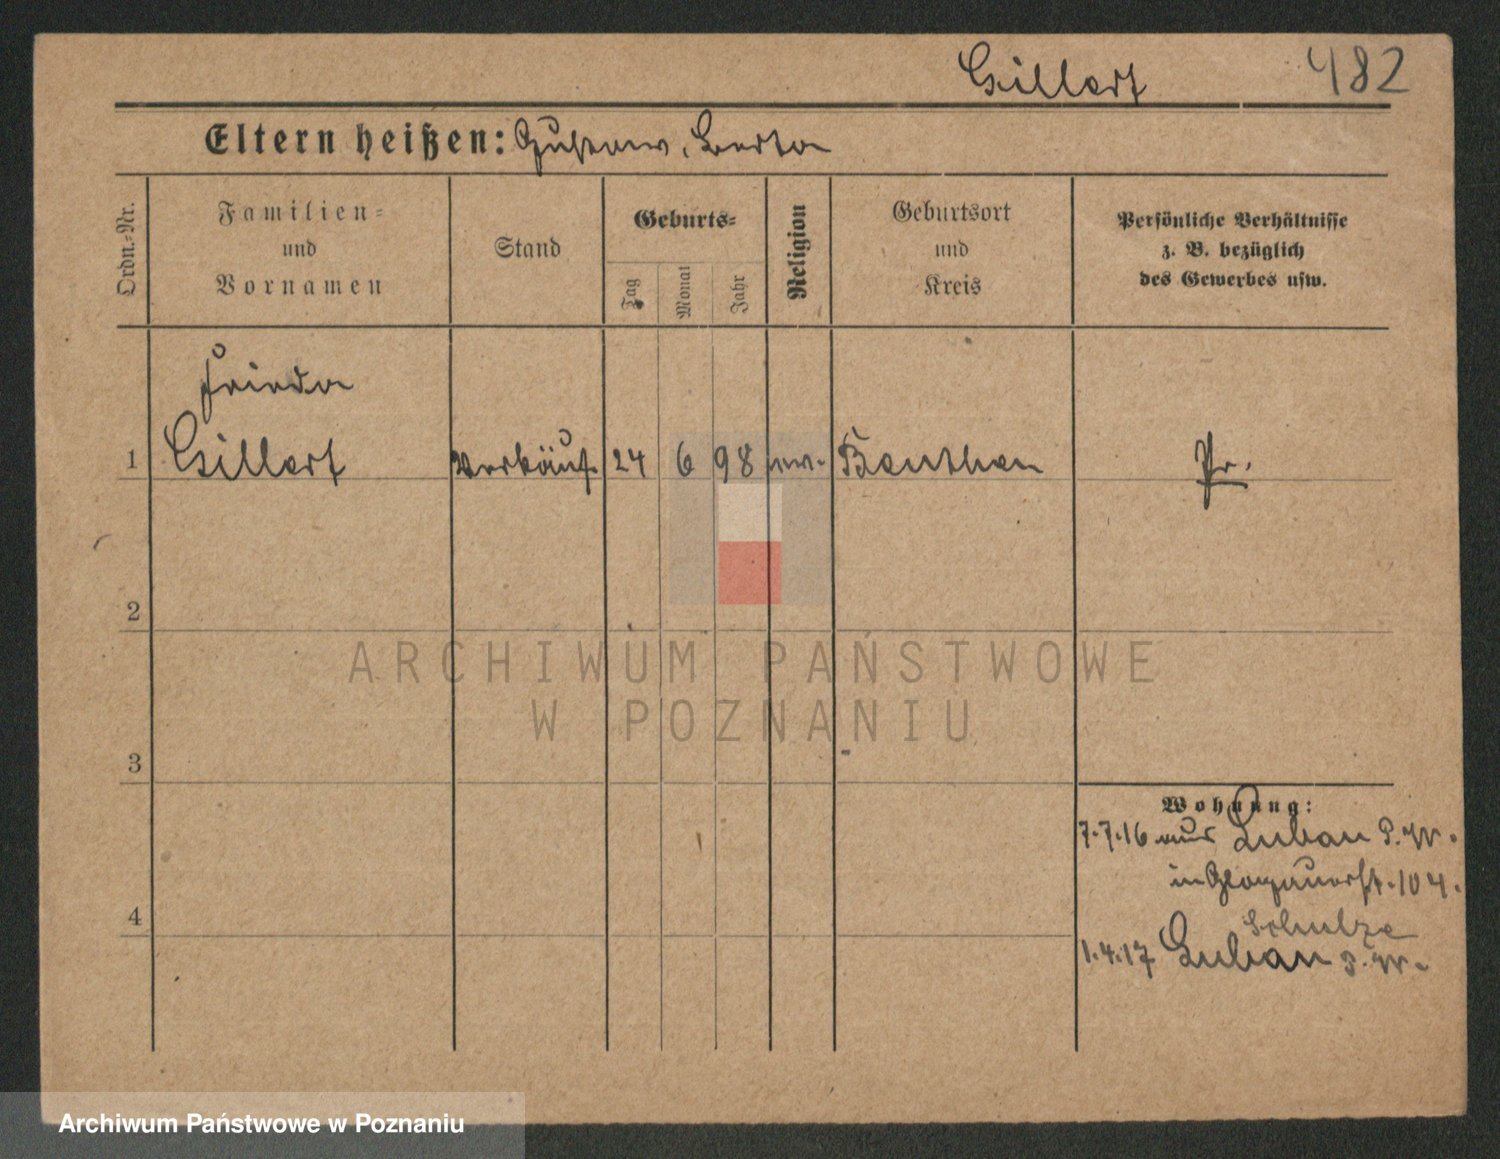 Gillert 482
Eltern heißen: Gustaw, Berta
Ordn.-Nr.
Familien-
und
Vornamen
Stand
Geburts-
Tag
Monat
Jahr
Religion
Geburtsort
und
Kreis
Persönliche Verhältnisse
z. B. bezüglich
des Gewerbes usw.
Frieda
1 Gillert Verkäuf. 24 6 98 ew. Beuthen Pr.
2
3
4
Wohnung:
7.7.16 aus Luban P. W.
in Glogauerstr. 104.
Schulze
1.4.17 Luban P. W.
ARCHIWUM PAŃSTWOWE
W POZNANIU
Archiwum Państwowe w Poznaniu